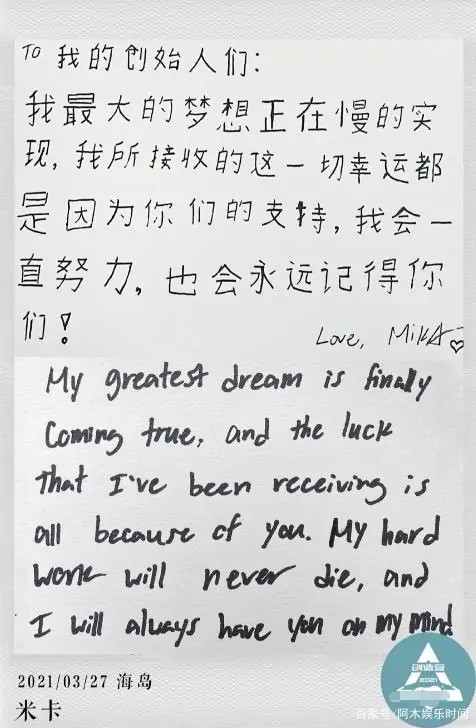 TO 我的创始人们:
我最大的梦想正在慢的实
现,我所接收的这一切幸运都
是因为你们的支持,我会一
直努力,也会永远记得你
们!
Love, MIKA
My greatest dream is finally
Coming true, and the luck
that I've been receiving is
all because of you. My hard
work will never die, and
I will always have you on my mind
2021/03/27 海岛
米卡
创造营
百家号/阿木娱乐时间